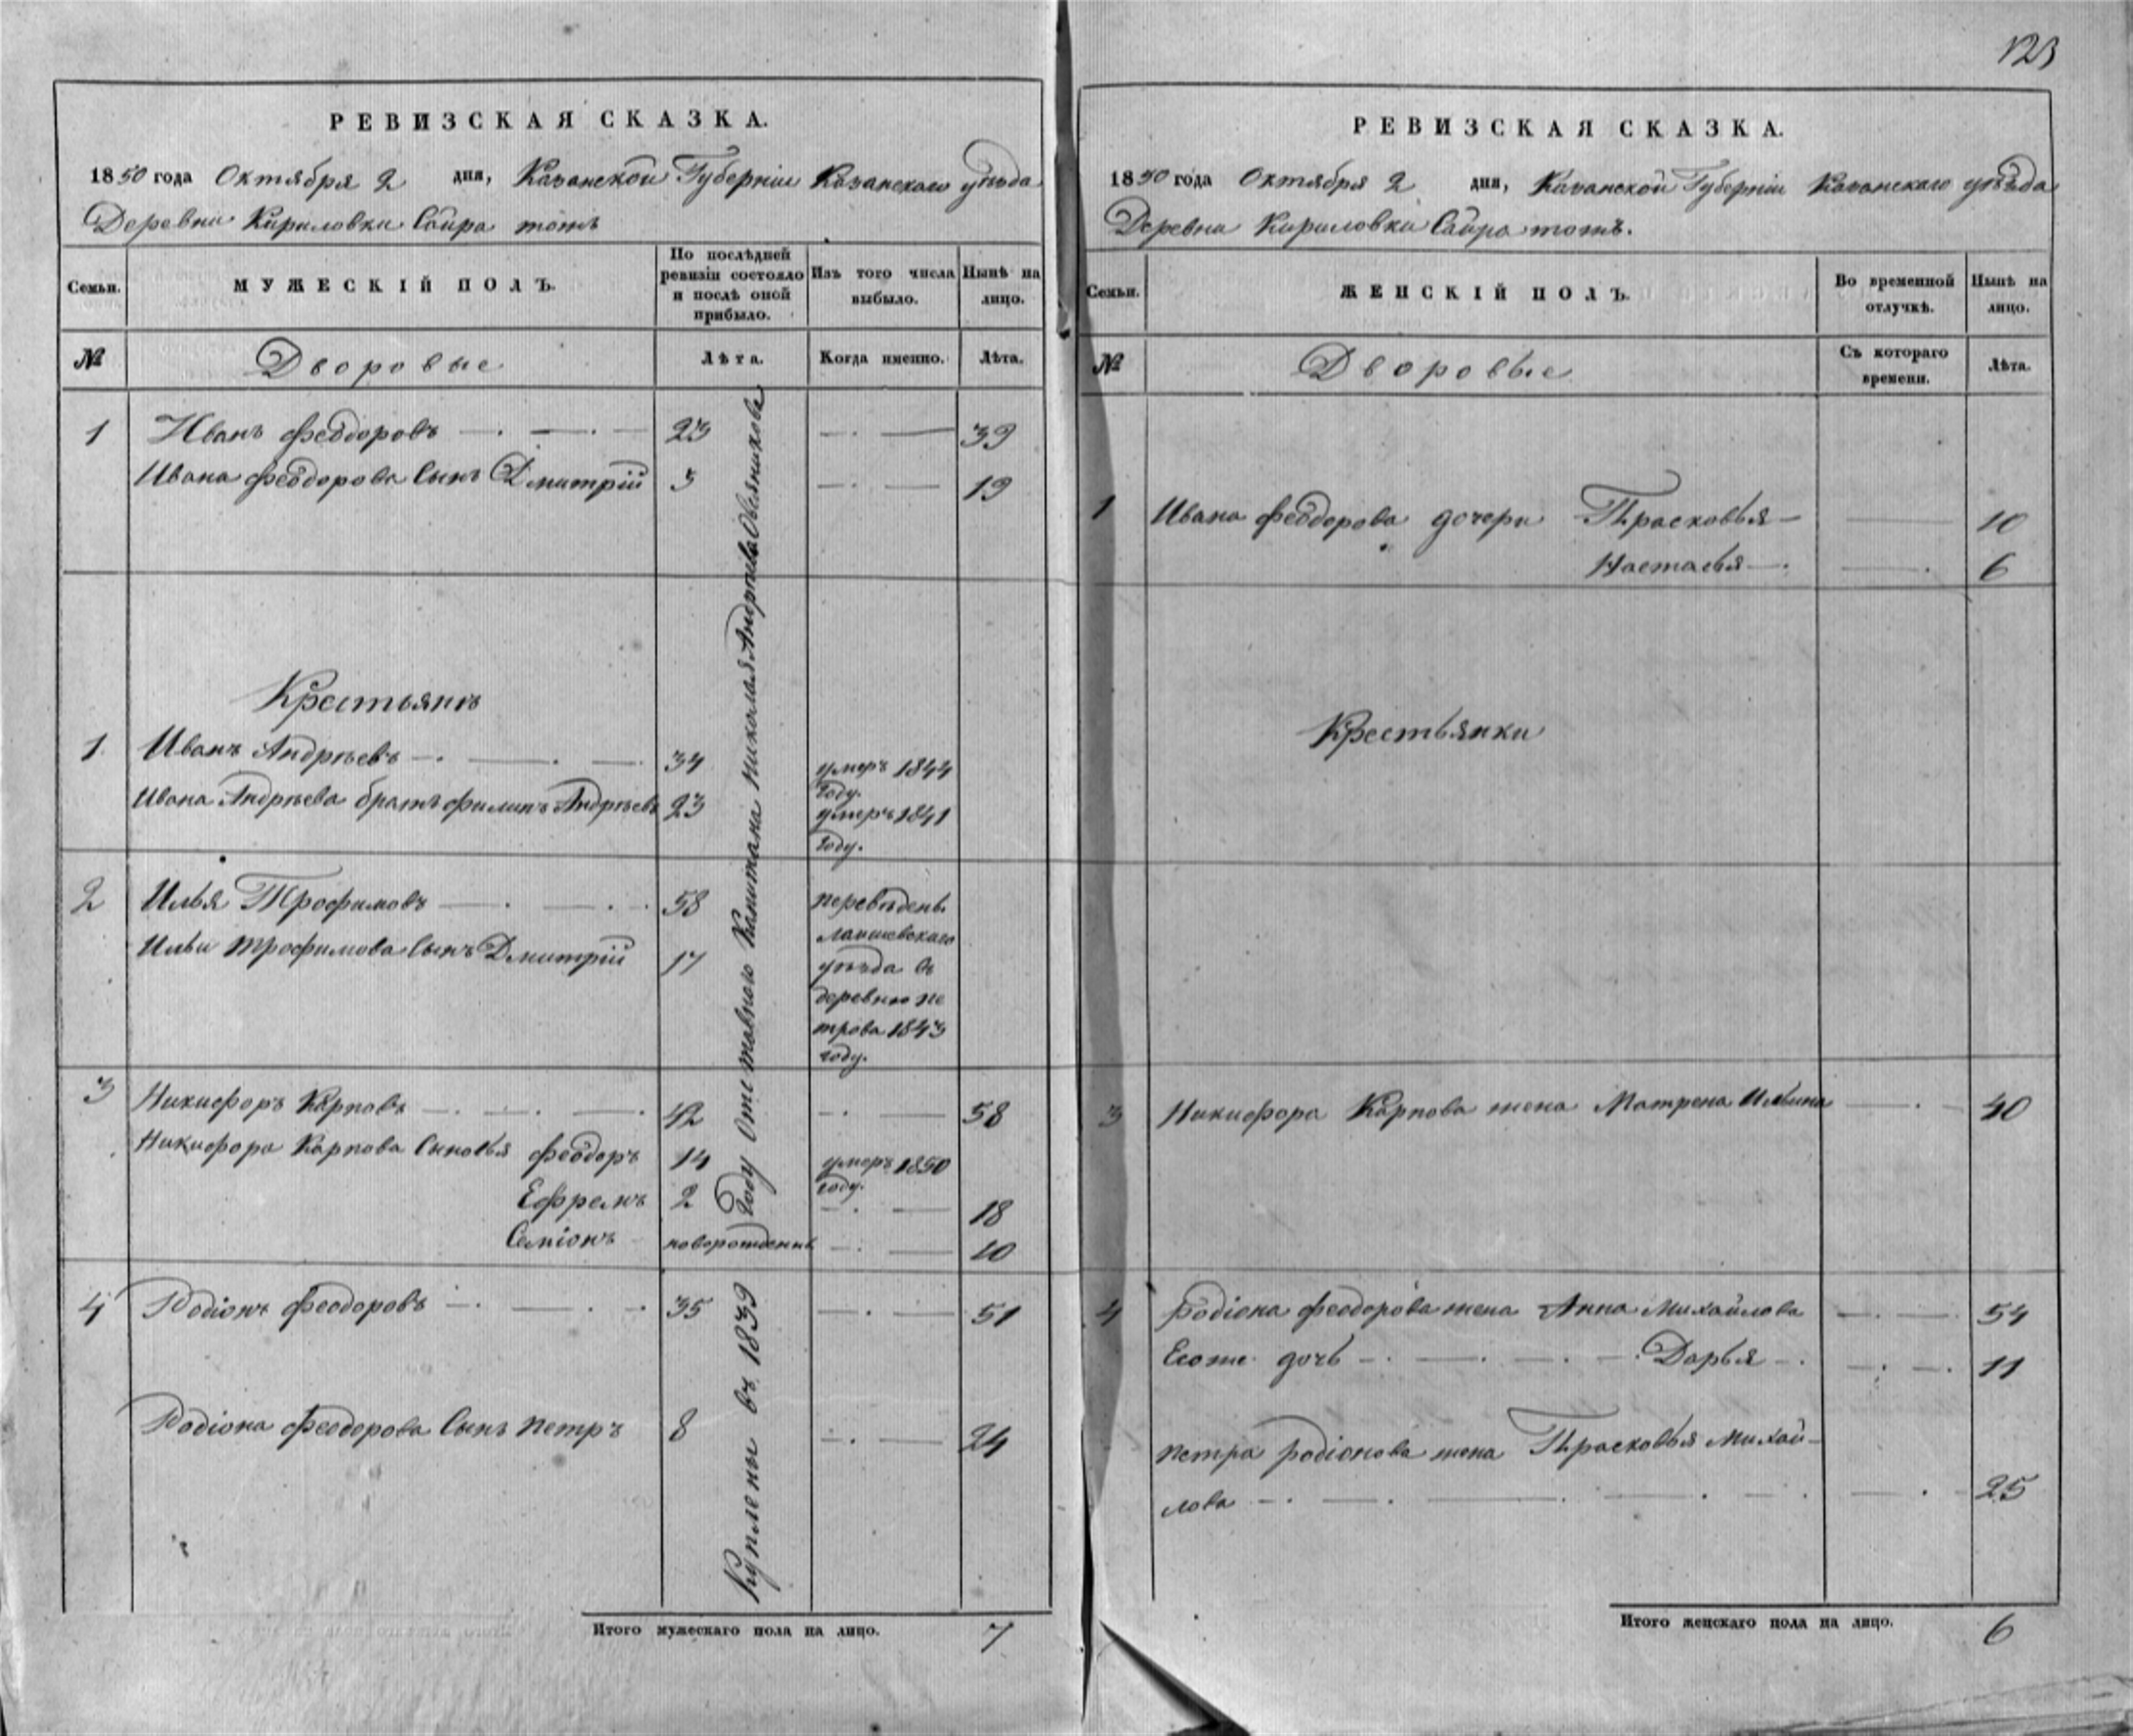 123
РЕВИЗСКАЯ СКАЗКА.
1850 года Октября 2 дня, Казанской Губерніи Казанскаго уѣзда
Деревни Кириловки Сайра тожъ
Семьи.
МУЖЕСКІЙ ПОЛЪ.
По послѣдней ревизіи состояло и послѣ оной прибыло.
Изъ того числа выбыло.
Нынѣ на лицо.
№
Дворовые
Лѣта.
Когда именно.
Лѣта.
1 Иванъ Феодоровъ 23 39
Ивана Феодорова Сынъ Дмитрій 3 19
Крестьянъ
1. Иванъ Андрѣевъ 34 умеръ 1844 году.
Ивана Андрѣева братъ Филипъ Андрѣевъ 23 умеръ 1841 году.
2 Илья Трофимовъ 58 переведены
Ильи Трофимова Сынъ Дмитрій 17 лаишевскаго
уѣзда въ
деревню пе
трова 1843
году.
3 Никифоръ Карповъ 42 58
Никифора Карпова Сыновья Феодоръ 14 умеръ 1850 году.
Ефремъ 2 18
Семіонъ новорожденъ 10
4 Родіонъ Феодоровъ 35 51
Родіона Феодорова Сынъ Петръ 8 24
Куплены въ 1839 году Отъ Капитана Николая Андреева Овсяникова
Итого мужескаго пола на лицо. 7
РЕВИЗСКАЯ СКАЗКА.
1850 года Октября 2 дня, Казанской Губерніи Казанскаго уѣзда
Деревни Кириловки Сайра тожъ.
Семьи.
ЖЕНСКІЙ ПОЛЪ.
Во временной отлучкѣ.
Нынѣ на лицо.
№
Дворовые
Съ котораго времени.
Лѣта.
1 Ивана Феодорова дочери Прасковья 10
Настасья 6
Крестьянки
3 Никифора Карпова жена Матрена Ильина 40
4 Родіона Феодорова жена Анна Михайлова 54
Егоже дочь Дарья 11
Петра Родіонова жена Прасковья Михай-
лова 25
Итого женскаго пола на лицо. 6